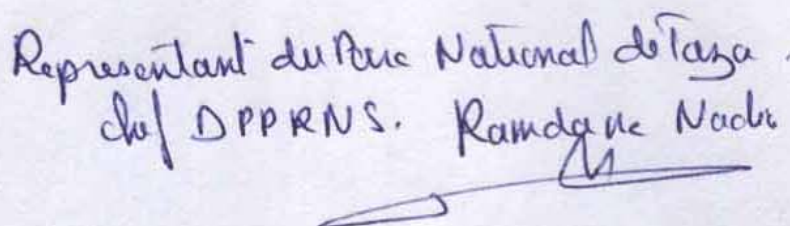 Representant du Parc National de Taza.
chef DPPRNS. Ramdane Nadir